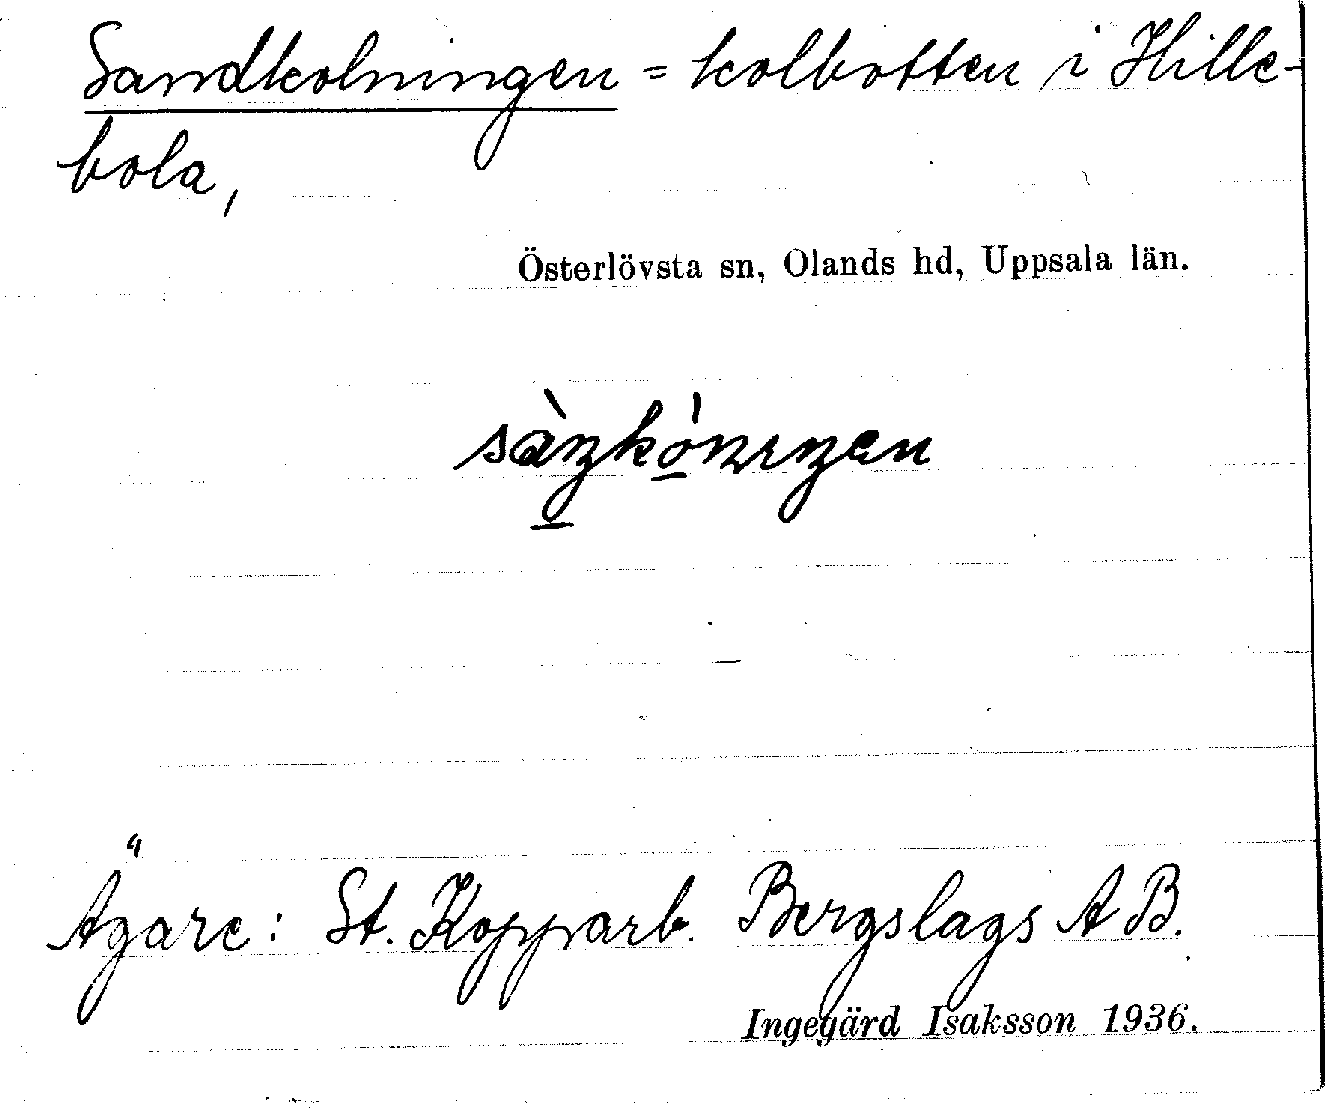 Sandkolningen = kolbotten i Hille-
bola,
Österlövsta sn, Olands hd, Uppsala län.
Ägare: St. Kopparb. Bergslags AB.
Ingegärd Isaksson 1936.